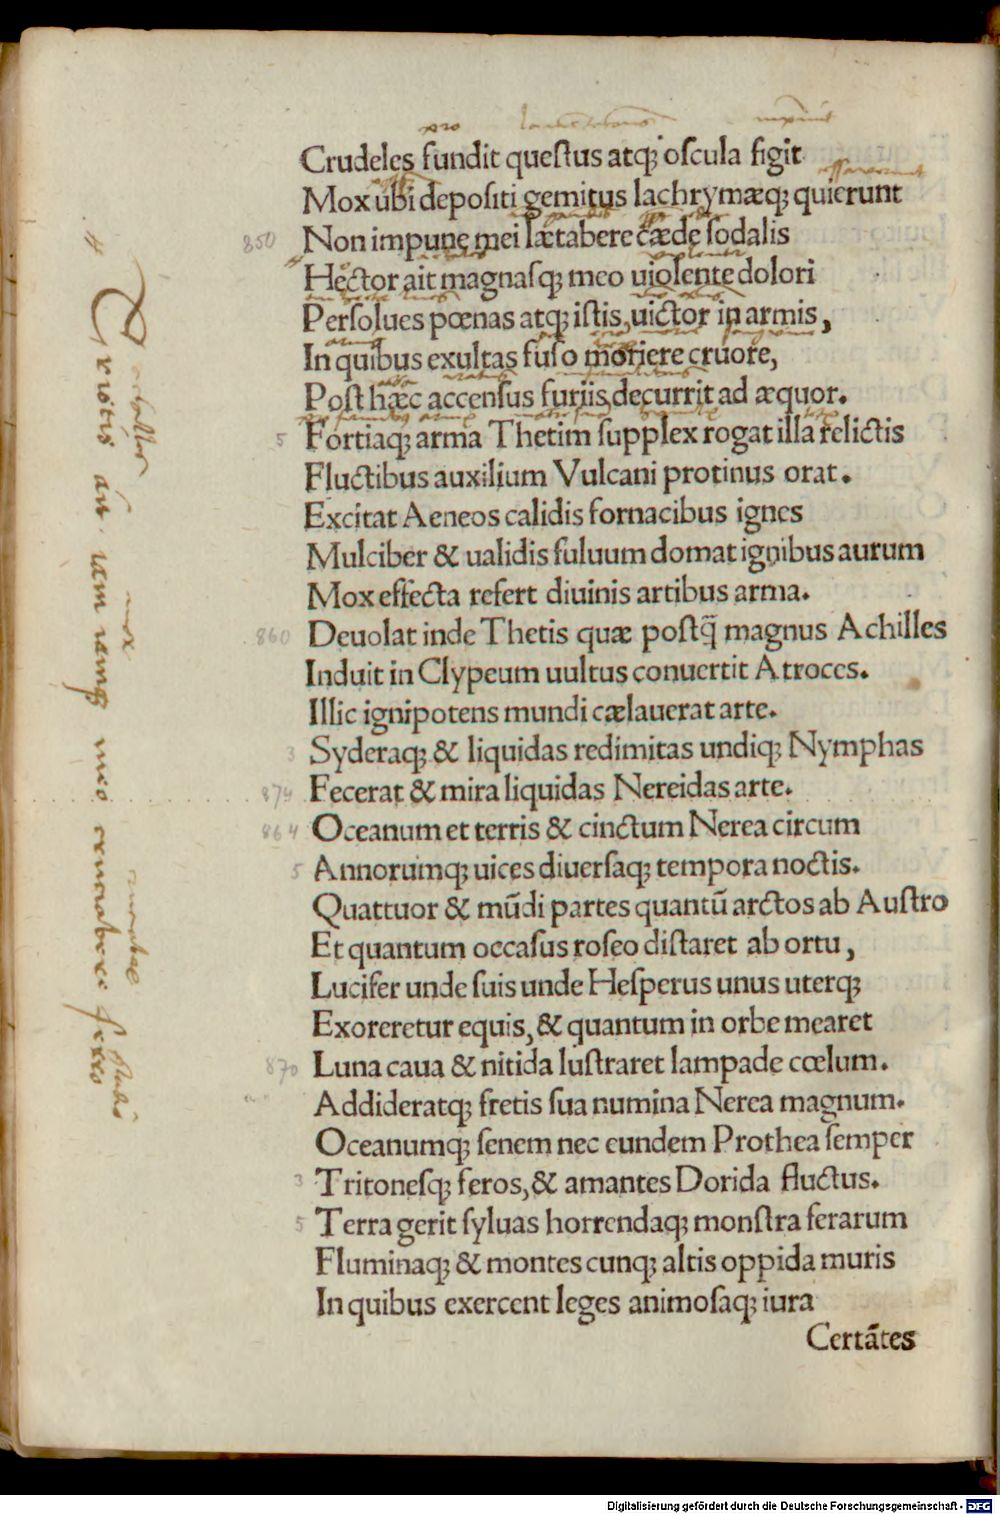 Crudeles fundit questus atq; oscula figit
Mox ubi depositi gemitus lachrymæq; quierunt
850 Non impune mei lætabere cæde sodalis
Hector ait magnasq; meo uiolente dolori
Persolues pœnas atq; istis, uictor in armis,
In quibus exultas fuso moriere cruore,
Post hæc accensus furiis decurrit ad æquor.
5 Fortiaq; arma Thetim supplex rogat illa relictis
Fluctibus auxilium Vulcani protinus orat.
Excitat Aeneos calidis fornacibus ignes
Mulciber & ualidis fuluum domat ignibus aurum
Mox effecta refert diuinis artibus arma.
860 Deuolat inde Thetis quæ postq̃ magnus Achilles
Induit in Clypeum uultus conuertit Atroces.
Illic ignipotens mundi cælauerat arte.
3 Syderaq; & liquidas redimitas undiq; Nymphas
874 Fecerat & mira liquidas Nereidas arte.
864 Oceanum et terris & cinctum Nerea circum
5 Annorumq; uices diuersaq; tempora noctis.
Quattuor & mũdi partes quantũ arctos ab Austro
Et quantum occasus roseo distaret ab ortu,
Lucifer unde suis unde Hesperus unus uterq;
Exoreretur equis, & quantum in orbe mearet
870 Luna caua & nitida lustraret lampade cœlum.
Addideratq; fretis sua numina Nerea magnum.
Oceanumq; senem nec eundem Prothea semper
3 Tritonesq; feros, & amantes Dorida fluctus.
5 Terra gerit syluas horrendaq; monstra ferarum
Fluminaq; & montes cunq; altis oppida muris
In quibus exercent leges animosaq; iura
Certãtes
Digitalisierung gefördert durch die Deutsche Forschungsgemeinschaft - DFG